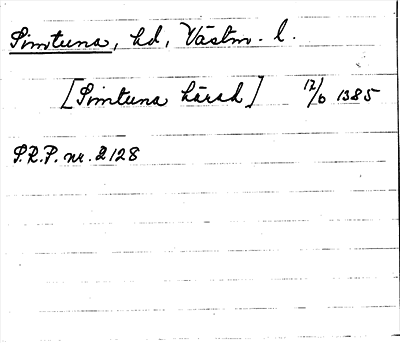 Simtuna, hd, Västm. l.
[Simtuna hærad] 12/6 1385
S.R.P. nr. 2128